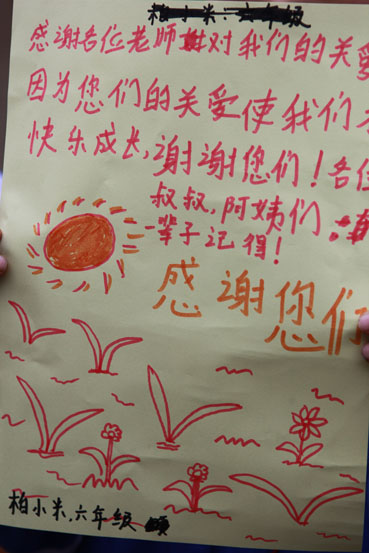 柏小米：六年级
感谢各位老师对我们的关爱
因为您们的关爱使我们才
快乐成长，谢谢您们！各位
叔叔，阿姨们，真
一辈子记得！
感谢您们
柏小米，六年级